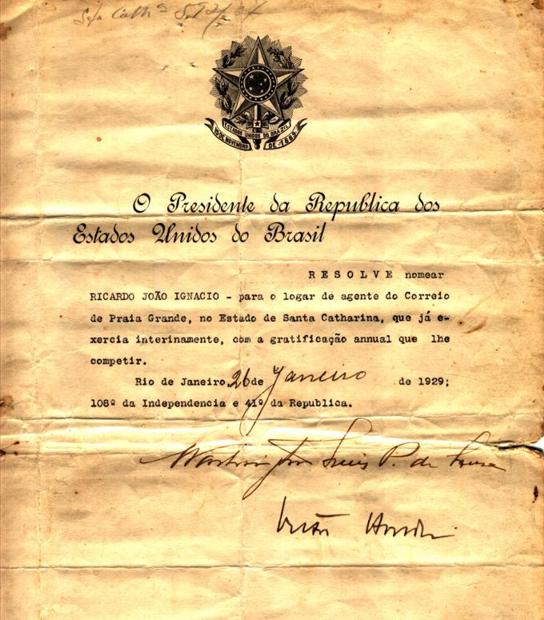 ESTADOS UNIDOS DO BRAZIL
15 DE NOVEMBRO DE 1889
O Presidente da Republica dos
Estados Unidos do Brasil
RESOLVE nomear
RICARDO JOÃO IGNACIO - para o logar de agente do Correio
de Praia Grande, no Estado de Santa Catharina, que já e-
xercia interinamente, com a gratificação annual que lhe
competir.
Rio de Janeiro, 26 de Janeiro de 1929;
108º da Independencia e 41º da Republica.
Washington Luis P. de Sousa